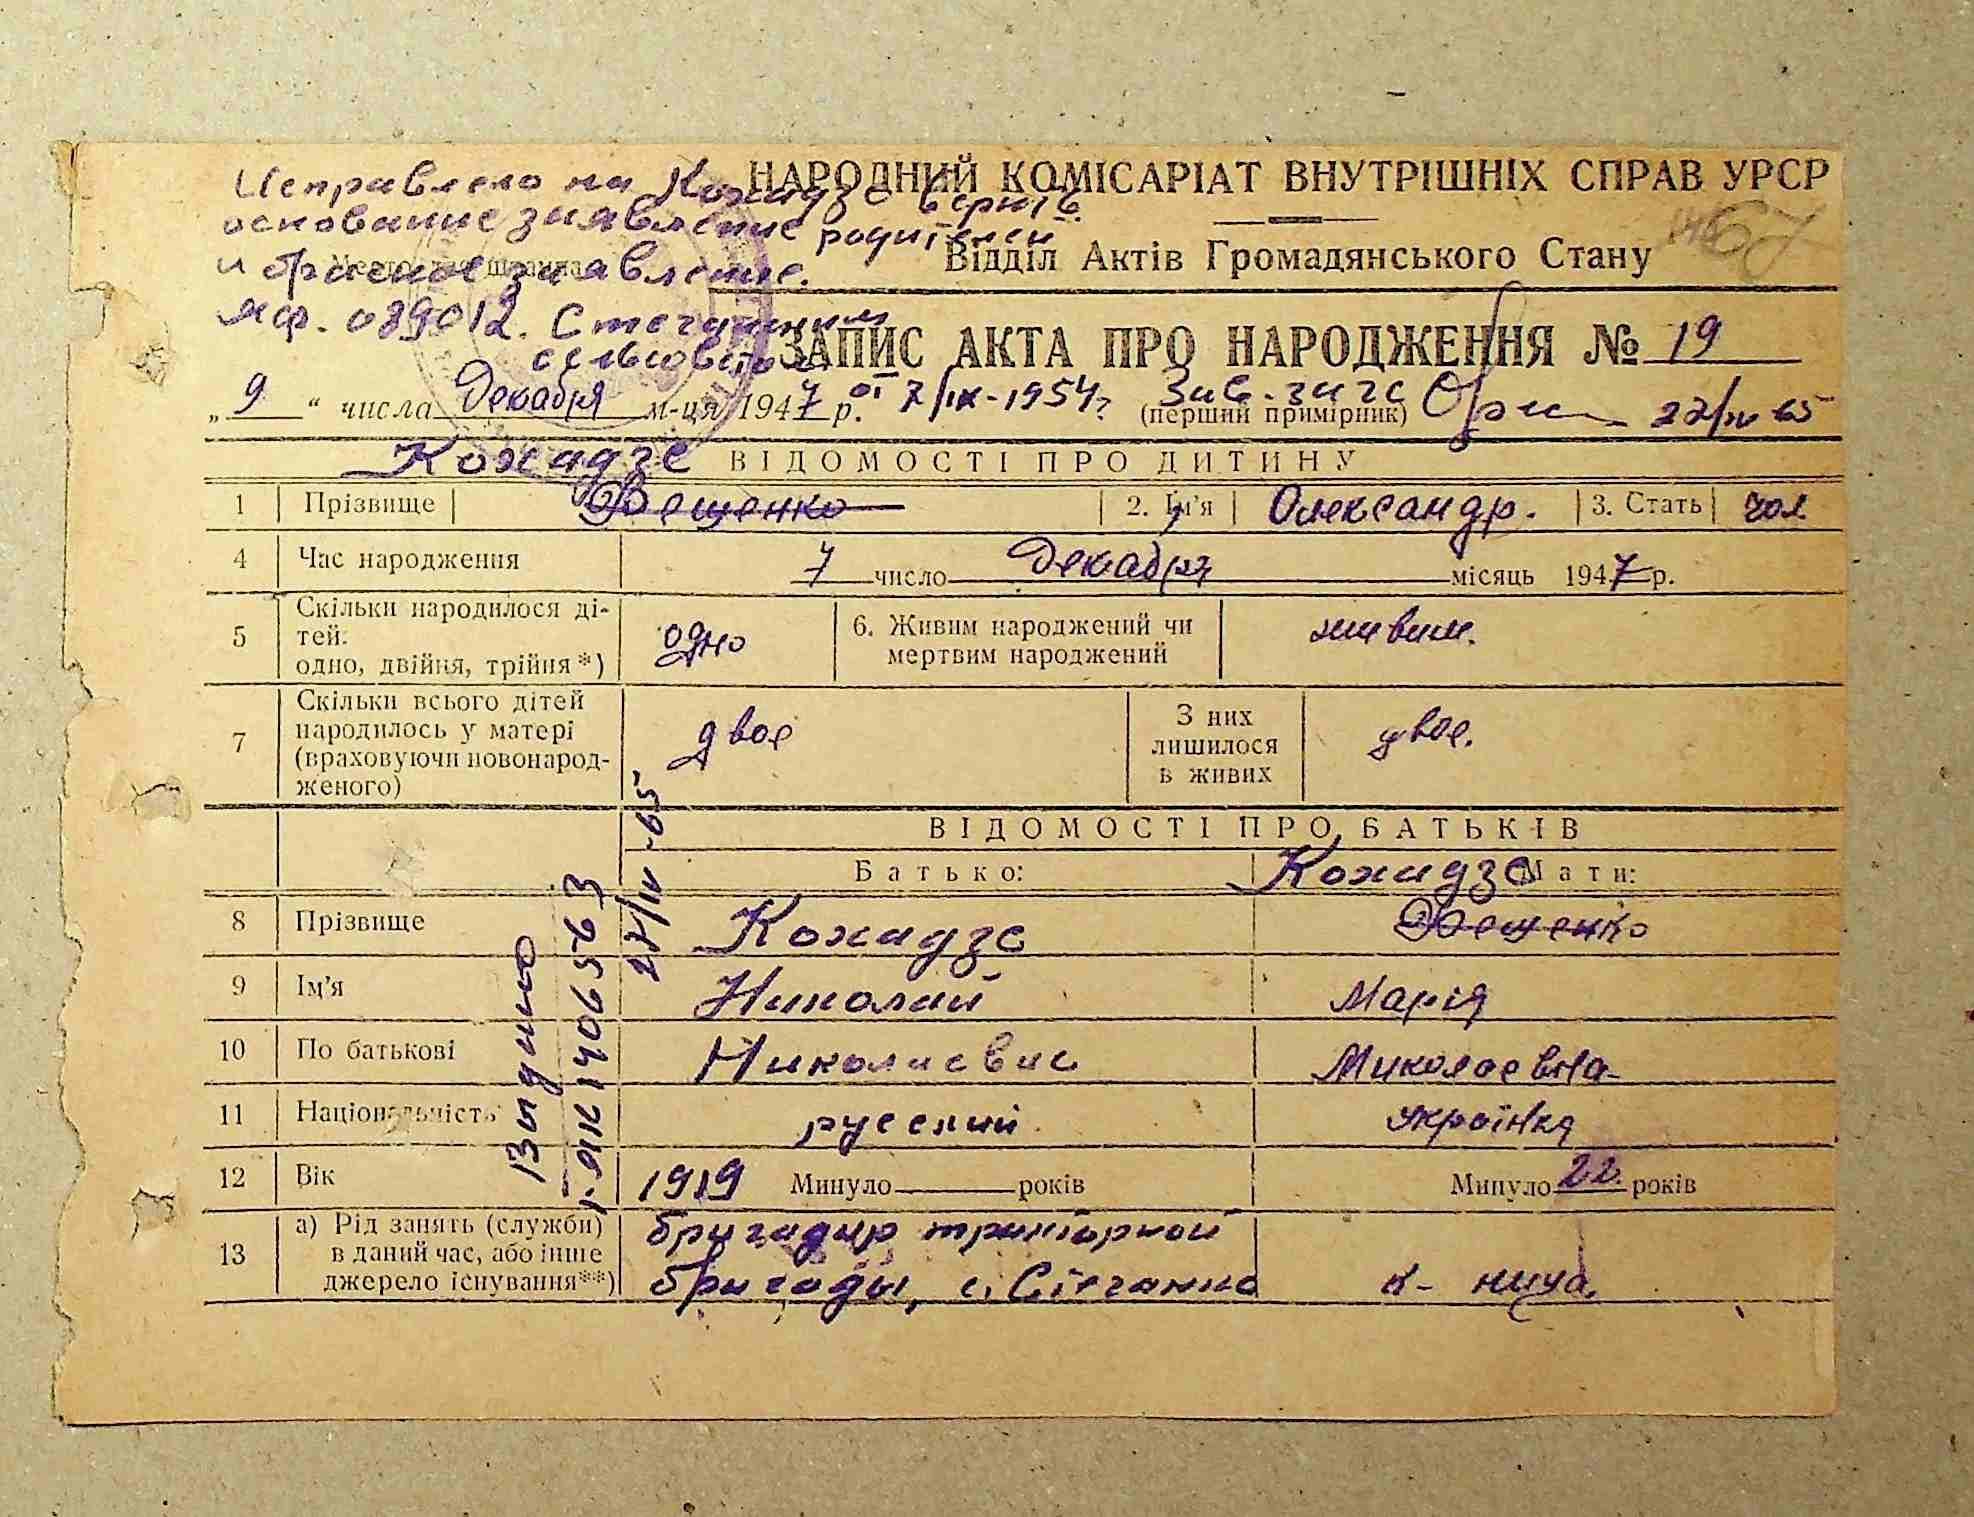 НАРОДНИЙ КОМІСАРІАТ ВНУТРІШНІХ СПРАВ УРСР
Исправлено на Кожадзе верить
основание заявление родителей
и брачное заявление.
ЯФ. 089012. Стечанким
сельсовето
67
Відділ Актів Громадянського Стану
ЗАПИС АКТА ПРО НАРОДЖЕННЯ № 19
„ 9 “ числа Декабря м-ця 1947 р. от 7/IX-1954г
Зав. загс
(перший примірник) 22/IV 65
Кожадзе
ВІДОМОСТІ ПРО ДИТИНУ
1 Прізвище Вещенко 2. Ім'я Олександр. 3. Стать чол
4 Час народження 7 число Декабря місяць 1947 р.
5 Скільки народилося ді-
тей:
одно, двійня, трійня*) одно 6. Живим народжений чи
мертвим народжений живим.
7 Скільки всього дітей
народилось у матері
(враховуючи новонарод-
женого) двое З них
лишилося
в живих двое.
ВІДОМОСТІ ПРО БАТЬКІВ
Батько: Мати:
Кожадзе
8 Прізвище Кожадзе Вещенко
9 Ім'я Николай Марія
10 По батькові Николаевич Миколаевна
11 Національність русский Українка
12 Вік 1919 Минуло років Минуло 22. років
13 а) Рід занять (служби)
в даний час, або інше
джерело існування**) бригадир тракторной
бригады, с. Стечанка к-ниця.
Выдано
I-ЯК 1406563
22/IV-65